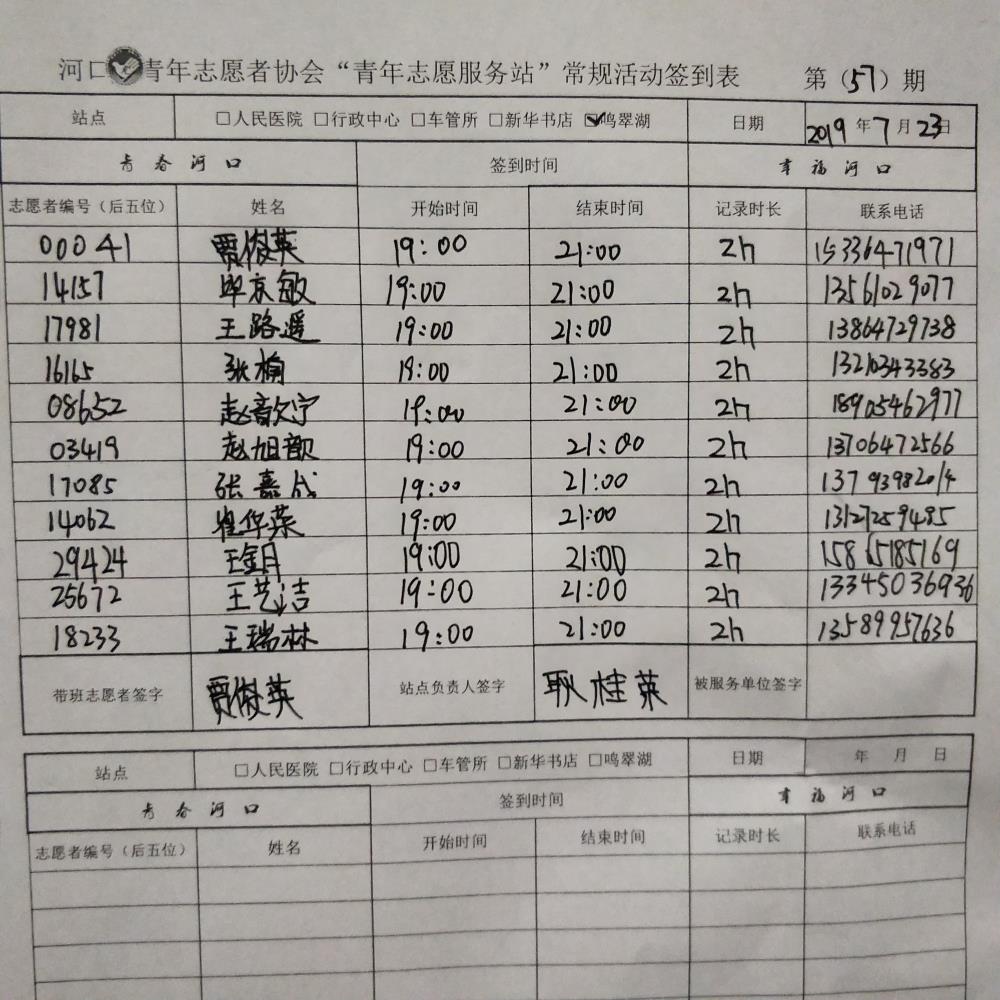 河口青年志愿者协会“青年志愿服务站”常规活动签到表 第（57）期
站点 □人民医院 □行政中心 □车管所 □新华书店 ☑鸣翠湖 日期 2019年7月23日
青春河口 签到时间 幸福河口
志愿者编号（后五位） 姓名 开始时间 结束时间 记录时长 联系电话
00041 贾俊英 19:00 21:00 2h 15336471971
14157 毕京敏 19:00 21:00 2h 13561029077
17981 王路遥 19:00 21:00 2h 13864729738
16165 张楠 19:00 21:00 2h 13210343383
08652 赵 19:00 21:00 2h 18905462977
03419 赵旭歆 19:00 21:00 2h 13706472566
17085 张嘉成 19:00 21:00 2h 13793982014
14062 崔华荣 19:00 21:00 2h 13127259485
29424 王金月 19:00 21:00 2h 15865185169
25672 王艺洁 19:00 21:00 2h 13345036936
18233 王瑞林 19:00 21:00 2h 13589957636
带班志愿者签字 贾俊英 站点负责人签字 耿桂荣 被服务单位签字
站点 □人民医院 □行政中心 □车管所 □新华书店 □鸣翠湖 日期 年 月 日
青春河口 签到时间 幸福河口
志愿者编号（后五位） 姓名 开始时间 结束时间 记录时长 联系电话